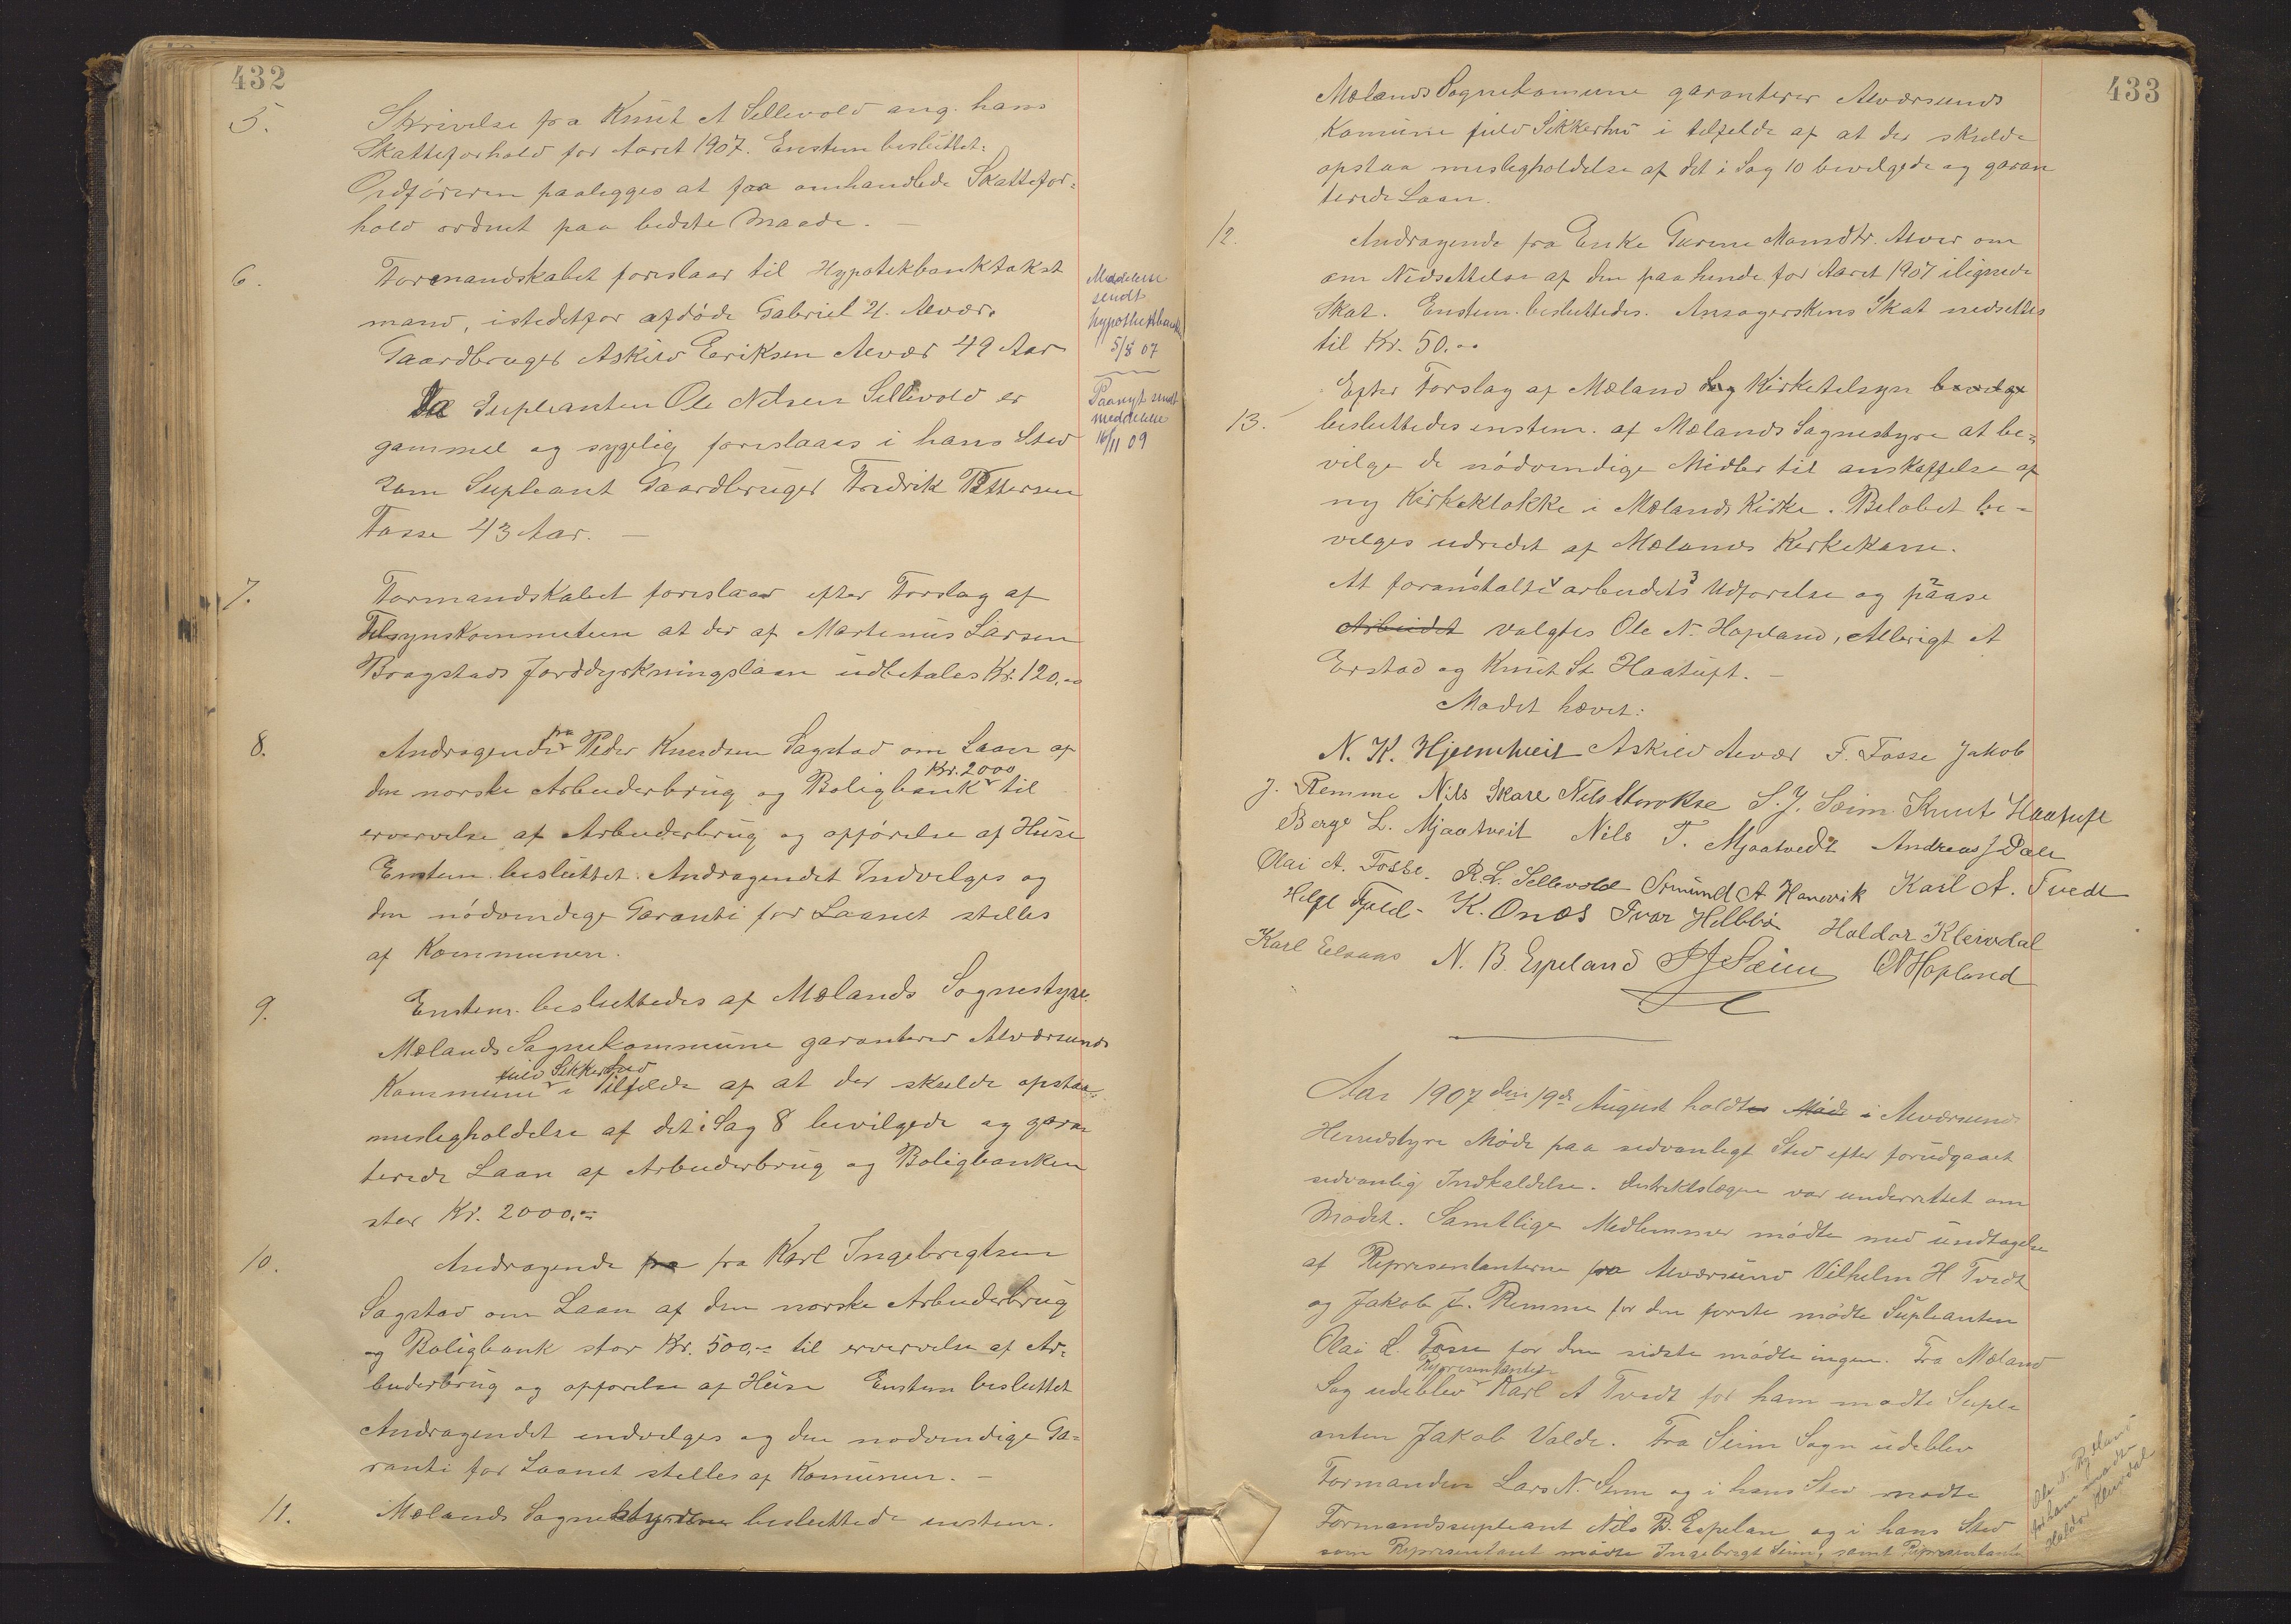 432
5. Skrivelse fra Knut A Sellevold ang. hans
Skatteforhold for Aaret 1907. Enstem besluttet:
Ordføreren paalegges at faa omhandlede Skattefor-
hold ordnet paa bedste Maade. —
6. Formandskabet foreslaar til Hypotekbanktakst
mand, istedetfor afdøde Gabriel H. Alvær.
Gaardbruger Askild Eriksen Alvær 49 Aar
Da Supleanten Ole Nilsen Sellevold er
gammel og sygelig foreslaaes i hans Sted
som Supleant Gaardbruger Fredrik Pettersen
Fosse 43 Aar. —
Meddelelse
sendt
hypothekbanken
5/8 07
Paanyt sendt
meddelelse
16/11 09
7. Formandskabet foreslaar efter Forslag af
Tilsynskommiteen at der af Martinus Larsen
Bragstads Jorddyrkningslaan udbetales Kr. 120.00
8. Andragende fra Peder Knudsen Sagstad om Laan af
den norske Arbeiderbrug og Boligbank Kr. 2000 til
ervervelse af Arbeiderbrug og opførelse af Huse
Enstem. besluttet. Andragendet Indvilges og
den nødvendige Garanti for Laanet stilles
af Kommunen.
9. Enstem. besluttedes af Mælands Sognestyre.
Mælands Sognekommune garanterer Alværsunds
Kommune fuld Sikkerhed i Tilfælde af at der skulde opstaa
misligholdelse af det i Sag 8 bevilgede og garan
terede Laan af Arbeiderbrug og Boligbanken
stor Kr. 2000.00
10. Andragende fra fra Karl Ingebrigtsen
Sagstad om Laan af den norske Arbeiderbrug
og Boligbank stor Kr. 500.00 til ervervelse af Ar-
beiderbrug og opførelse af Huse Enstem besluttet
Andragendet indvilges og den nødvendige Ga-
ranti for Laanet stilles af Komunen. —
11. Mælands Sognestyre besluttede enstem.
433
Mælands Sognekomune garanterer Alværsunds
Komune fuld Sikkerhed i tilfælde af at der skulde
opstaa misligholdelse af det i Sag 10 bevilgede og garan
terede Laan.
12. Andragende fra Enke Gurine Mamdtr. Alver om
om Nedsættelse af den paa hende for Aaret 1907 ilignede
Skat. Enstem. besluttedes. Ansøgerskens Skat nedsettes
til Kr. 50.00
Efter Forslag af Mæland Sog Kirketilsyn bevilge
13. besluttedes enstem. af Mælands Sognestyre at be-
vilge de nødvendige Midler til anskaffelse af
ny Kirkeklokke i Mælands Kirke. Beløbet be-
vilges udredet af Mælands Kirkekasse.
At foranstalte arbeidets Udførelse og paase
Arbeidet valgtes Ole N. Hopland, Albrigt A
Erstad og Knut St. Haatuft. —
Mødet hævet:
N. K. Hjelmtveit Askild Alvær F. Fosse Jakob
J. Remme Nils Skare Nils Storokse S. J. Seim Knut Haatuft
Berge L. Mjaatveit Nils T. Mjaatvedt Andreas J Dale
Olai A. Fosse. R. L. Sellevold Amund A Hanevik Karl A. Tvedt
Helge Fjeld - K. Onæs Ivar Hellebø Haldor Kleivdal
Karl Eelsaas N. B. Espeland J J Seim O N Hopland
Aar 1907 den 19de August holdtes Møde i Alværsunds
Herredstyre Møde paa sedvanligt Sted efter forudgaaet
sedvanlig Indkaldelse. Distriktslægen var underrettet om
Mødet. Samtlige Medlemmer mødte med undtagelse
af Representanterne fra Alværsund Vilhelm H Tvedt
og Jakob J. Remme for den første mødte Supleanten
Olai L. Fosse for den sidste mødte ingen. Fra Mæland
Sog udeblev Representanten Karl A Tvedt for ham mødte Suple
anten Jakob Valde. Fra Seim Sogn udeblev
Formanden Lars N. Seim og i hans Sted mødte
Formandssupleant Nils B. Espelan og i hans Sted
som Representant mødte Ingebregt Seim, samt Representant
Ole N. Rylland
for ham mødte
Haldor Kleivdal